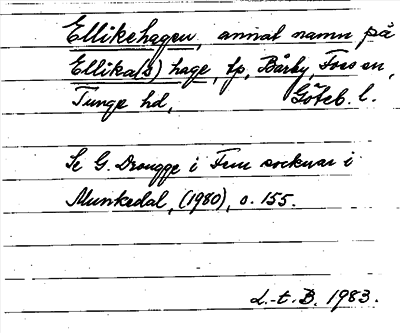 Ellikehagen, annat namn på
Ellika(s) hage, tp, Bärby, Foss sn,
Tunge hd, Göteb. l.
Se G. Drougge i Fem socknar i
Munkedal, (1980), s. 155.
L.-t. B. 1983.